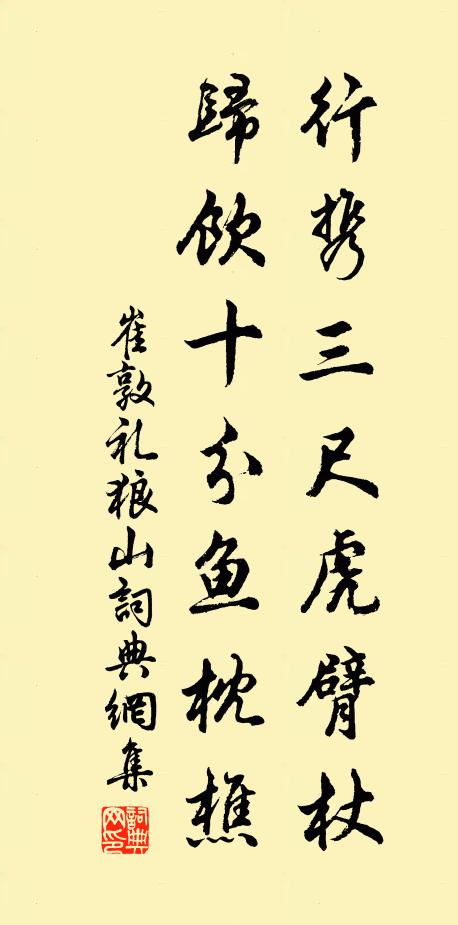 行携三尺虎臂杖
歸飲十分魚枕樵
崔敦礼狼山詞典網集
詞典网印